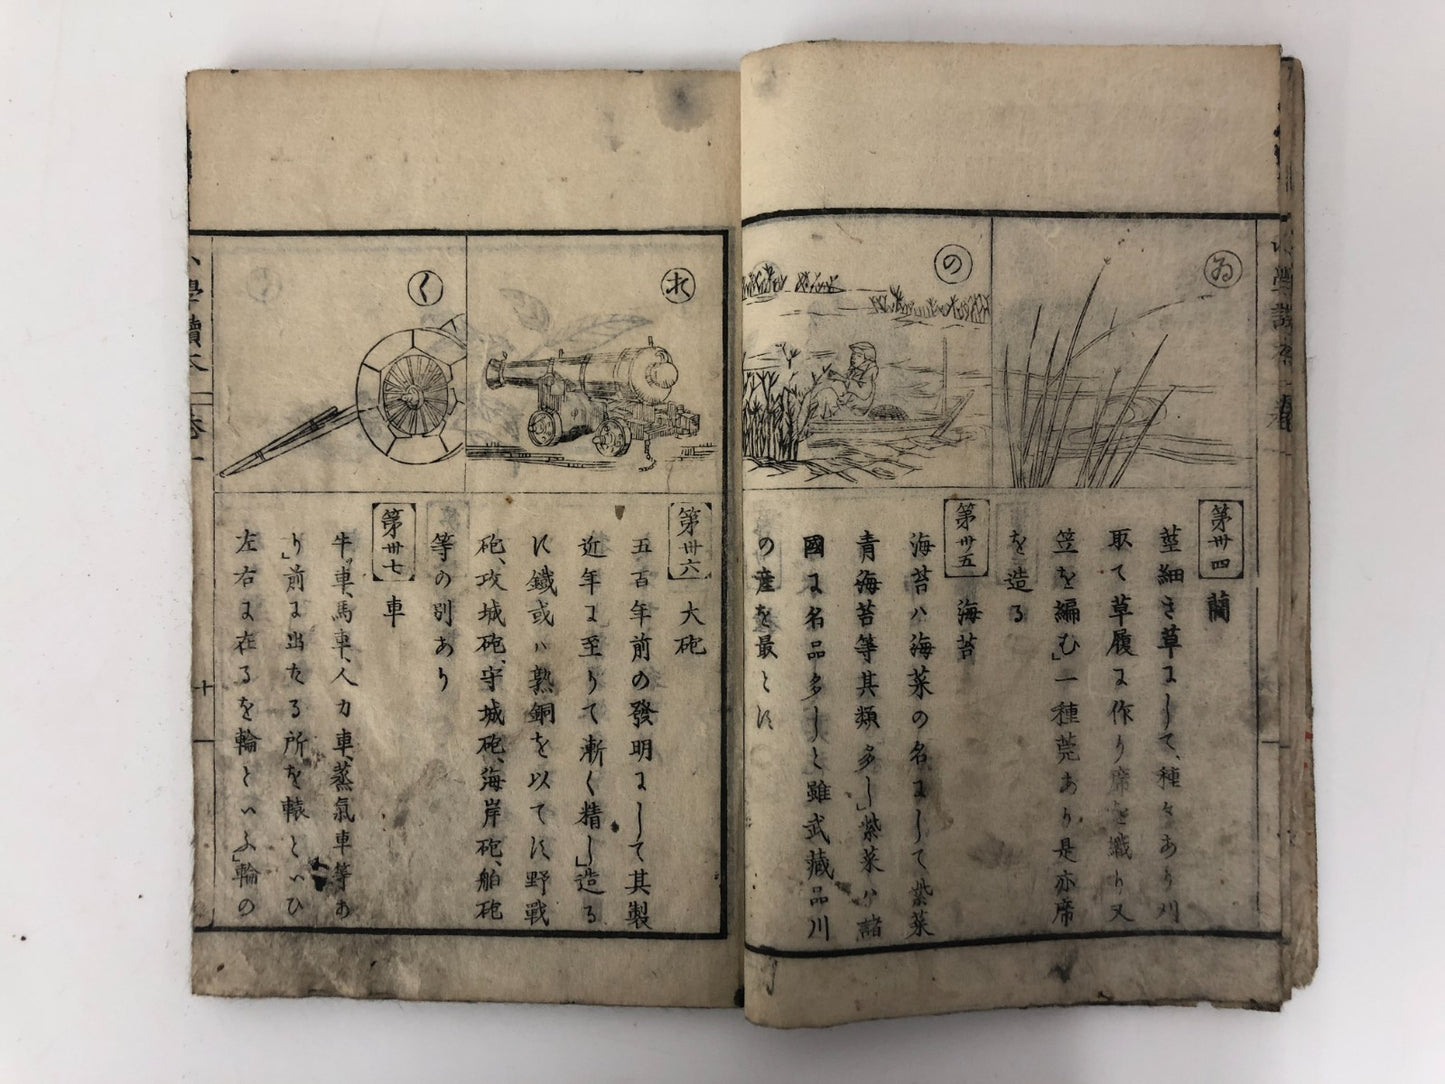 ゐ
第卅四 藺
莖細き草にして、種々あり刈
取て草履に作り席を織り又
笠を編む」一種莞あり是亦席
を造る
の
第卅五 海苔
海苔ハ海菜の名にして紫菜
青海苔等其類多し」紫菜ハ諸
國に名品多しと雖武藏品川
の産を最とす
お
第卅六 大砲
五百年前の發明にして其製
近年に至りて漸く精し」造る
に鐵或ハ熟銅を以てす野戰
砲、攻城砲、守城砲、海岸砲、舶砲
等の別あり
く
第卅七 車
牛車、馬車、人力車、蒸氣車等あ
り」前に出たる所を轅といひ
左右に在るを輪といふ」輪の
小學讀本 卷一
十